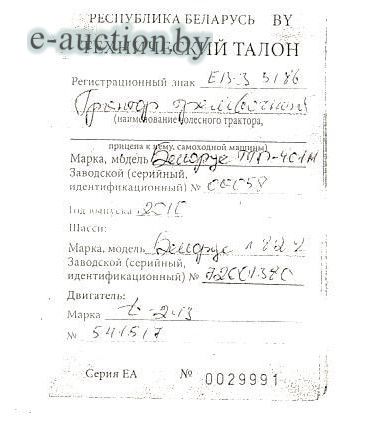 РЕСПУБЛИКА БЕЛАРУСЬ BY
e-auction.by
ТЕХНИЧЕСКИЙ ТАЛОН
Регистрационный знак ЕВ-3 3186
Трактор
(наименование колесного трактора,
прицепа к нему, самоходной машины)
Марка, модель Белорус
Заводской (серийный,
идентификационный) № 00058
Год выпуска 2010
Шасси:
Марка, модель Беларус
Заводской (серийный,
идентификационный) №
Двигатель:
Марка
№ 541517
Серия ЕА № 0029991